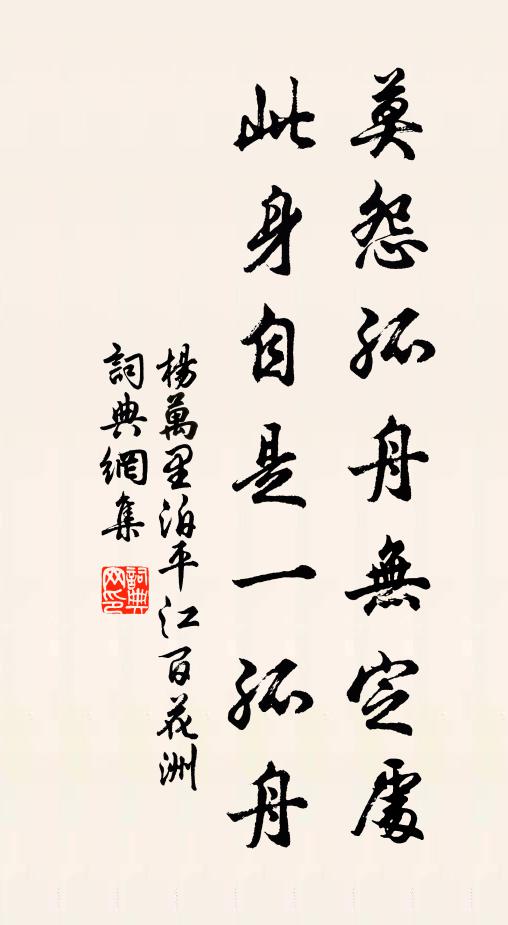 莫怨孤舟無定處
此身自是一孤舟
楊萬里泊平江百花洲
詞典網集
詞典
网印